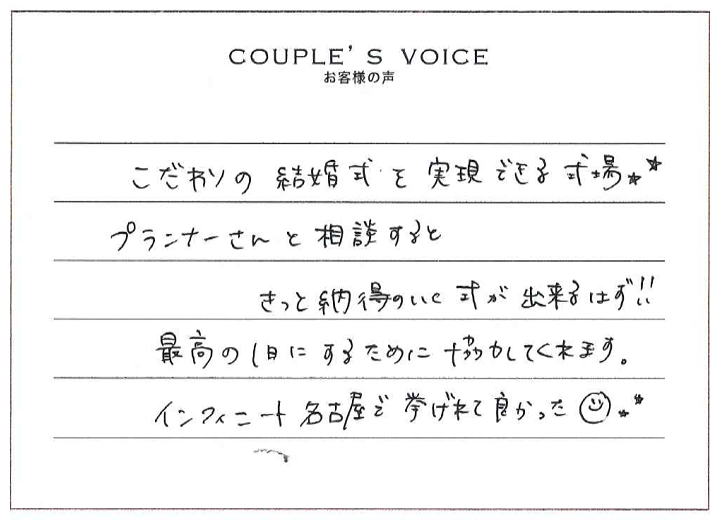 COUPLE'S VOICE
お客様の声
こだわりの 結婚式を 実現できる 式場☆☆
プランナーさんと相談すると
きっと納得のいく 式が 出来るはず!!
最高の1日にするために協力してくれます。
インフィニート名古屋で挙げれて良かった☺☆☆